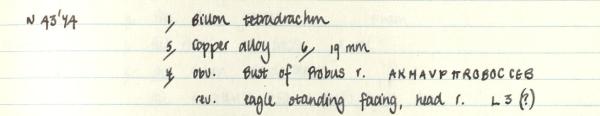 N 43'44 1, Billon tetradrachm
5, Copper alloy 6, 19 mm
4, obv. Bust of Probus r. AKMAVPΠROBOCCEB
rev. eagle standing facing, head r. L 3 (?)